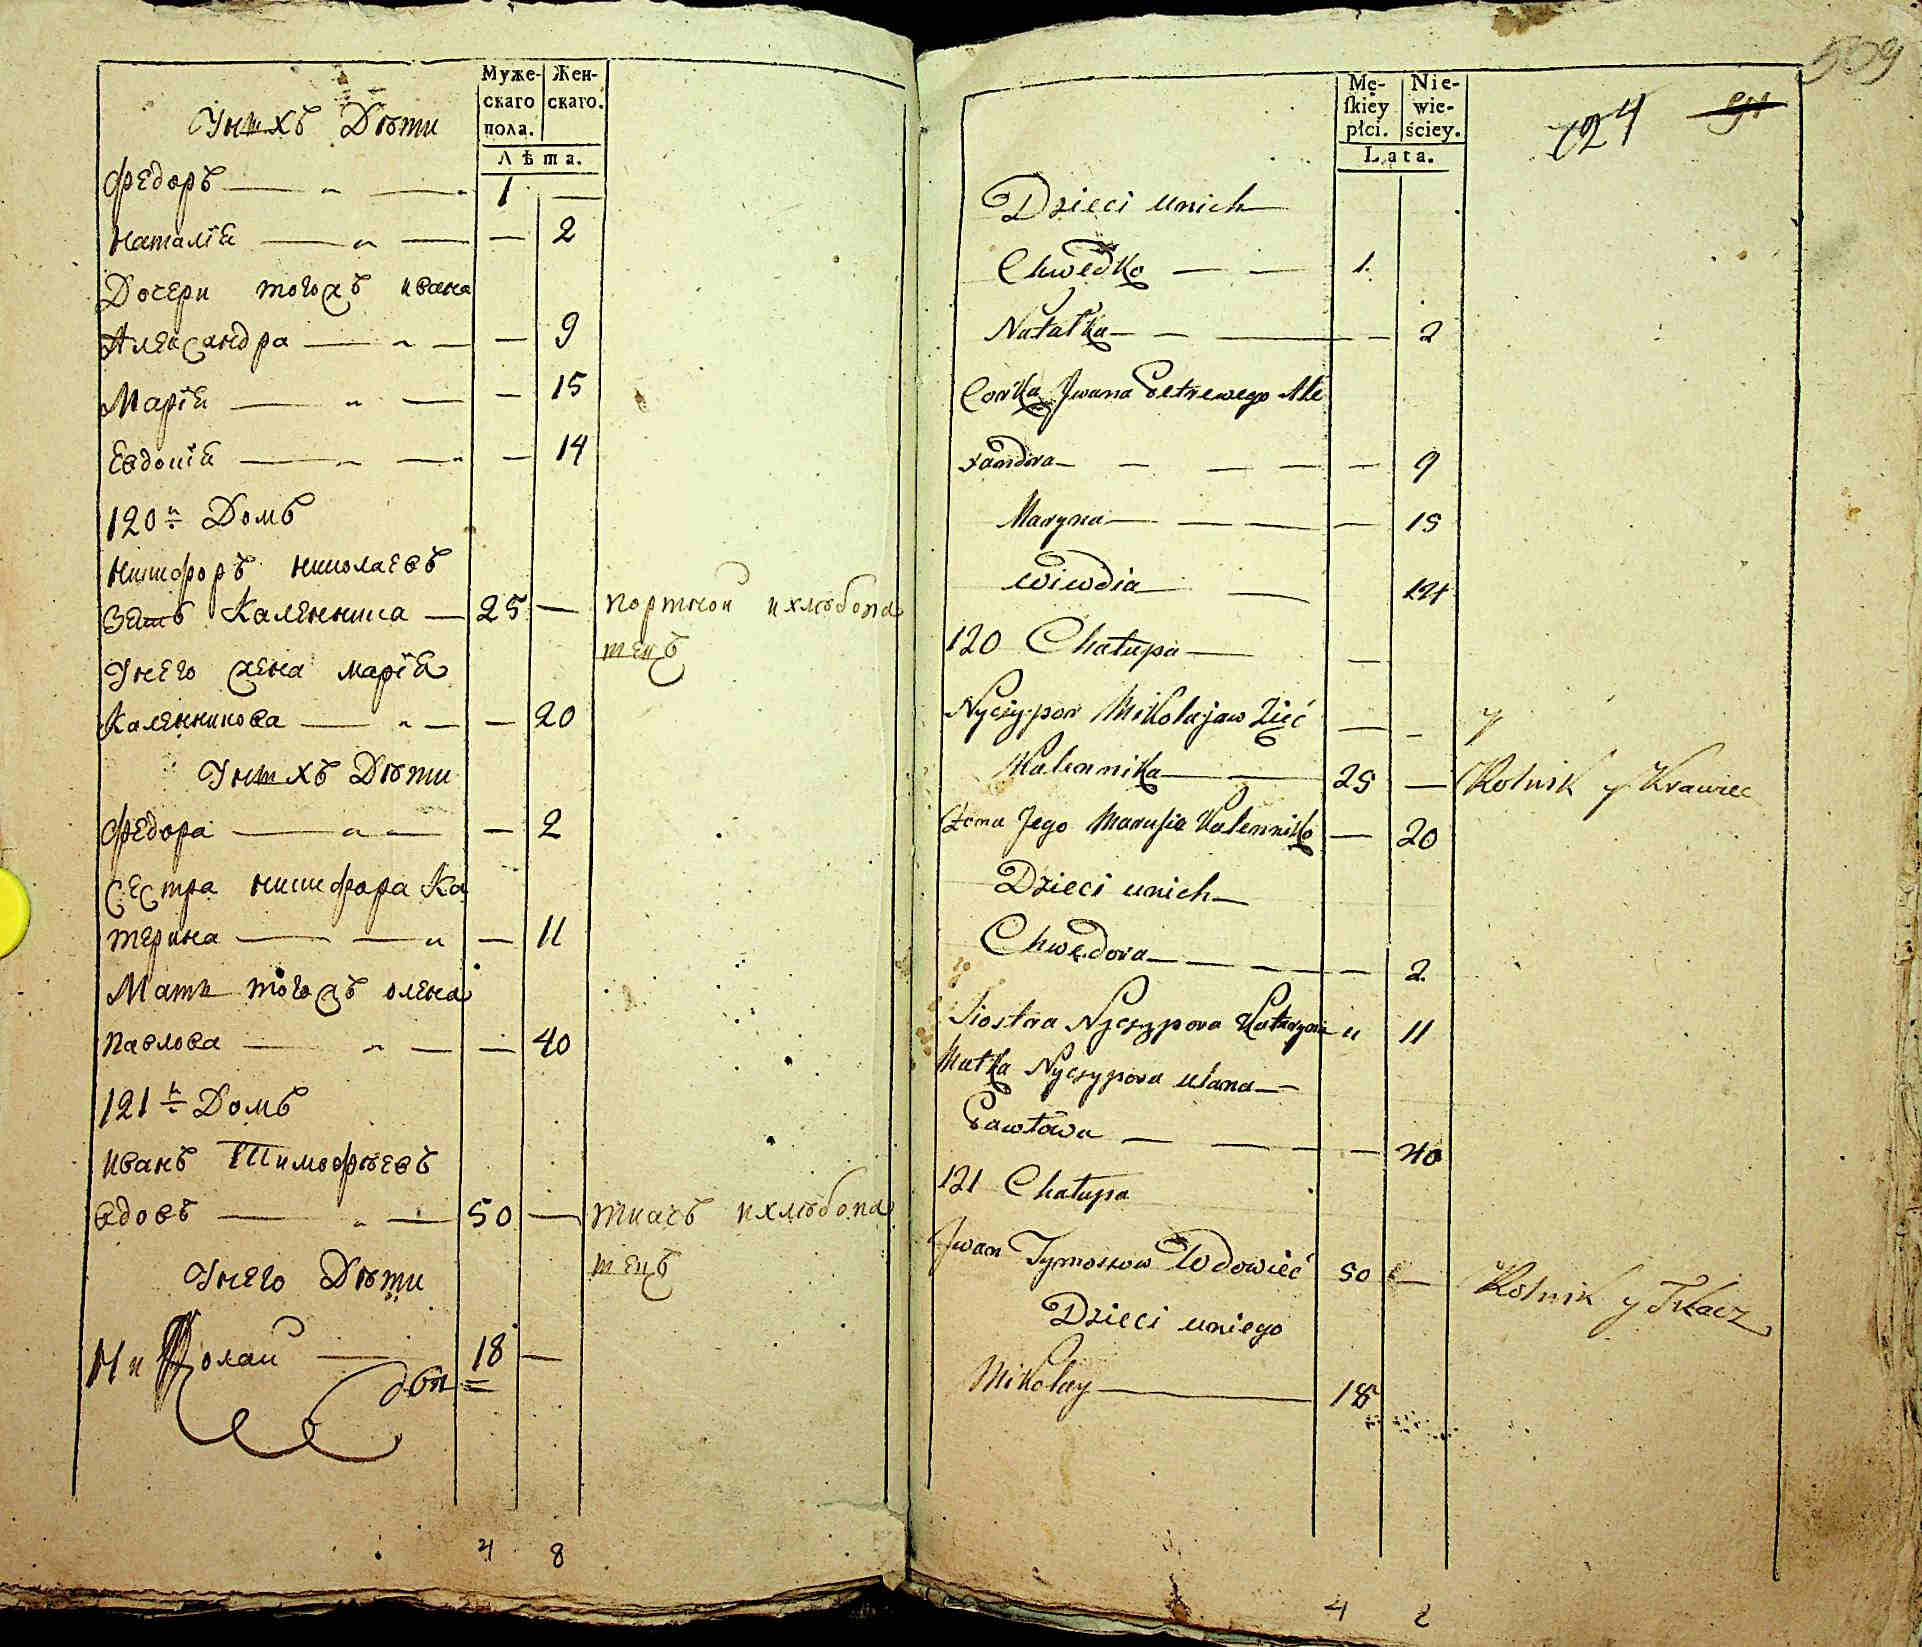 Муже- Жен-
скаго скаго.
пола.
Лѣта.
Унихъ Дѣти
Федоръ — „ — 1 —
Наталіа — „ — — 2
Дочери тогожъ ивана
Александра — „ — — 9
Маріа — „ — — 15
Евдокіа — „ — — 14
120й Домъ
Никифоръ николаевъ
Зать Каленника — 25 — портной ихлѣбопа
тецъ
Унего жена маріа
Каленникова — „ — — 20
Унихъ Дѣти
Федора — „ — — 2
Сестра никифора Ка
терина — — „ — 11
Мать тогожъ олена
Павлова — „ — — 40
121й Домъ
иванъ Тимофѣевъ
вдовъ — „ — 50 — ткачъ ихлѣбопа
тецъ
Унего Дѣти
Николай — 18 —
4 8
509
Mę- Nie-
ſkiey wie-
płci. ściey.
Lata.
124
Dzieci unich
Chwedko — — 1.
Natałka — — — — 2
Corka Jwana Petrewego Ale
xandra — — — — — 9
Maryna — — — — 15
Wiwdia — — 14
120 Chałupa — —
Nyczypor Mikołajow Zięć — — y
Kalennika — — 25 — Rolnik y Krawiec
Żona Jego Marusia Kalennika — 20
Dzieci unich —
Chwedora — — — — — 2
Siostra Nyczypora Katarzyna „ 11
Matka Nyczypora ulana —
Pawłowa — — — — 40
121 Chałupa
Jwan Tymoszow Wdowieć 50 — Rolnik y Tkacz
Dzieci uniego
Mikołay — 18
4 2